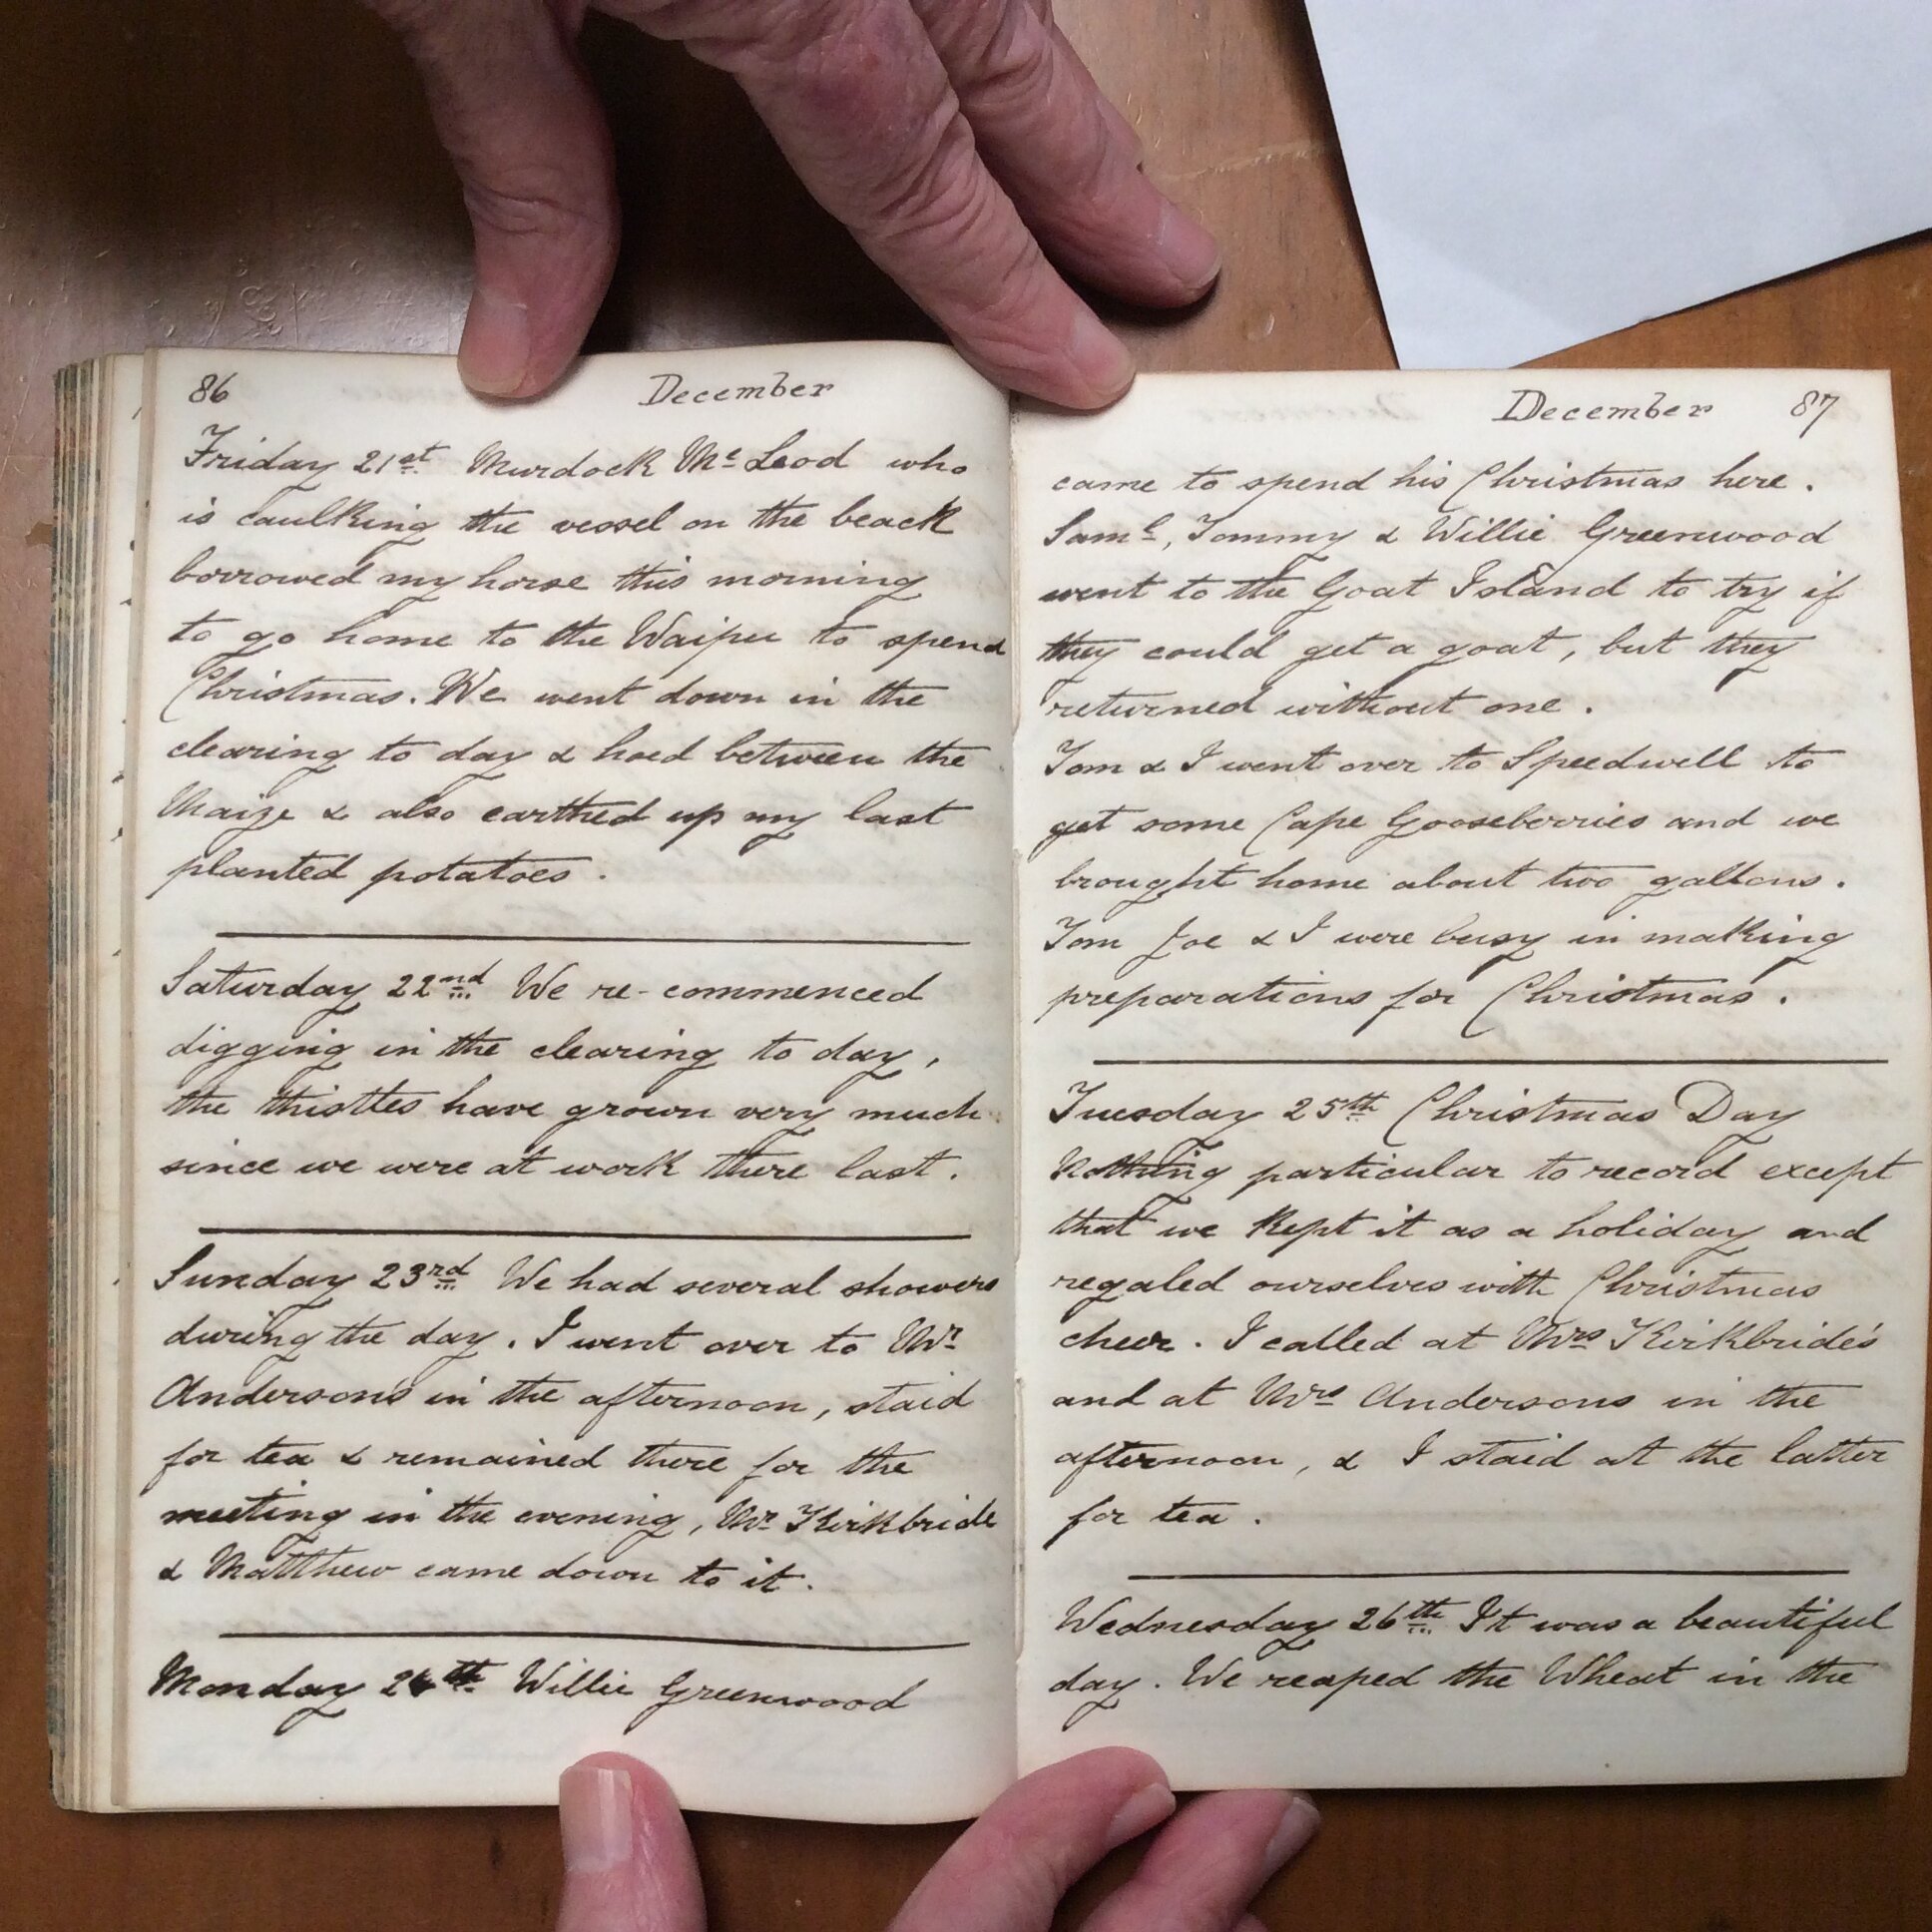 86 December
Friday 21st Murdock Mc Leod who
is caulking the vessel on the beach
borrowed my horse this morning
to go home to the Waipu to spend
Christmas. We went down in the
clearing to day & hoed between the
Maize & also earthed up my last
planted potatoes.
Saturday 22nd We re-commenced
digging in the clearing to day,
the thistles have grown very much
since we were at work there last.
Sunday 23rd We had several showers
during the day. I went over to Mr
Anderson's in the afternoon, staid
for tea & remained there for the
meeting in the evening, Mr Kirkbride
& Matthew came down to it.
Monday 24th Willie Greenwood
December 87
came to spend his Christmas here.
Saml, Tommy & Willie Greenwood
went to the Goat Island to try if
they could get a goat, but they
returned without one.
Tom & I went over to Speedwell to
get some Cape Gooseberries and we
brought home about two gallons.
Tom Joe & I were busy in making
preparations for Christmas.
Tuesday 25th Christmas Day
Nothing particular to record except
that we kept it as a holiday and
regaled ourselves with Christmas
cheer. I called at Mrs Kirkbride's
and at Mrs Andersons in the
afternoon, & I staid at the latter
for tea.
Wednesday 26th It was a beautiful
day. We reaped the Wheat in the